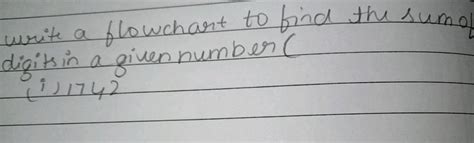 write a flowchart to find the sum of
digits in a given number (
(i) 1742